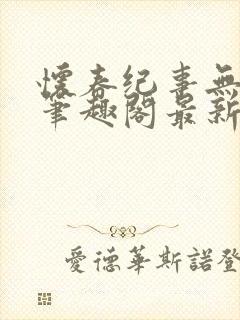 懷春紀事無
筆趣閣最新
愛德華斯諾登